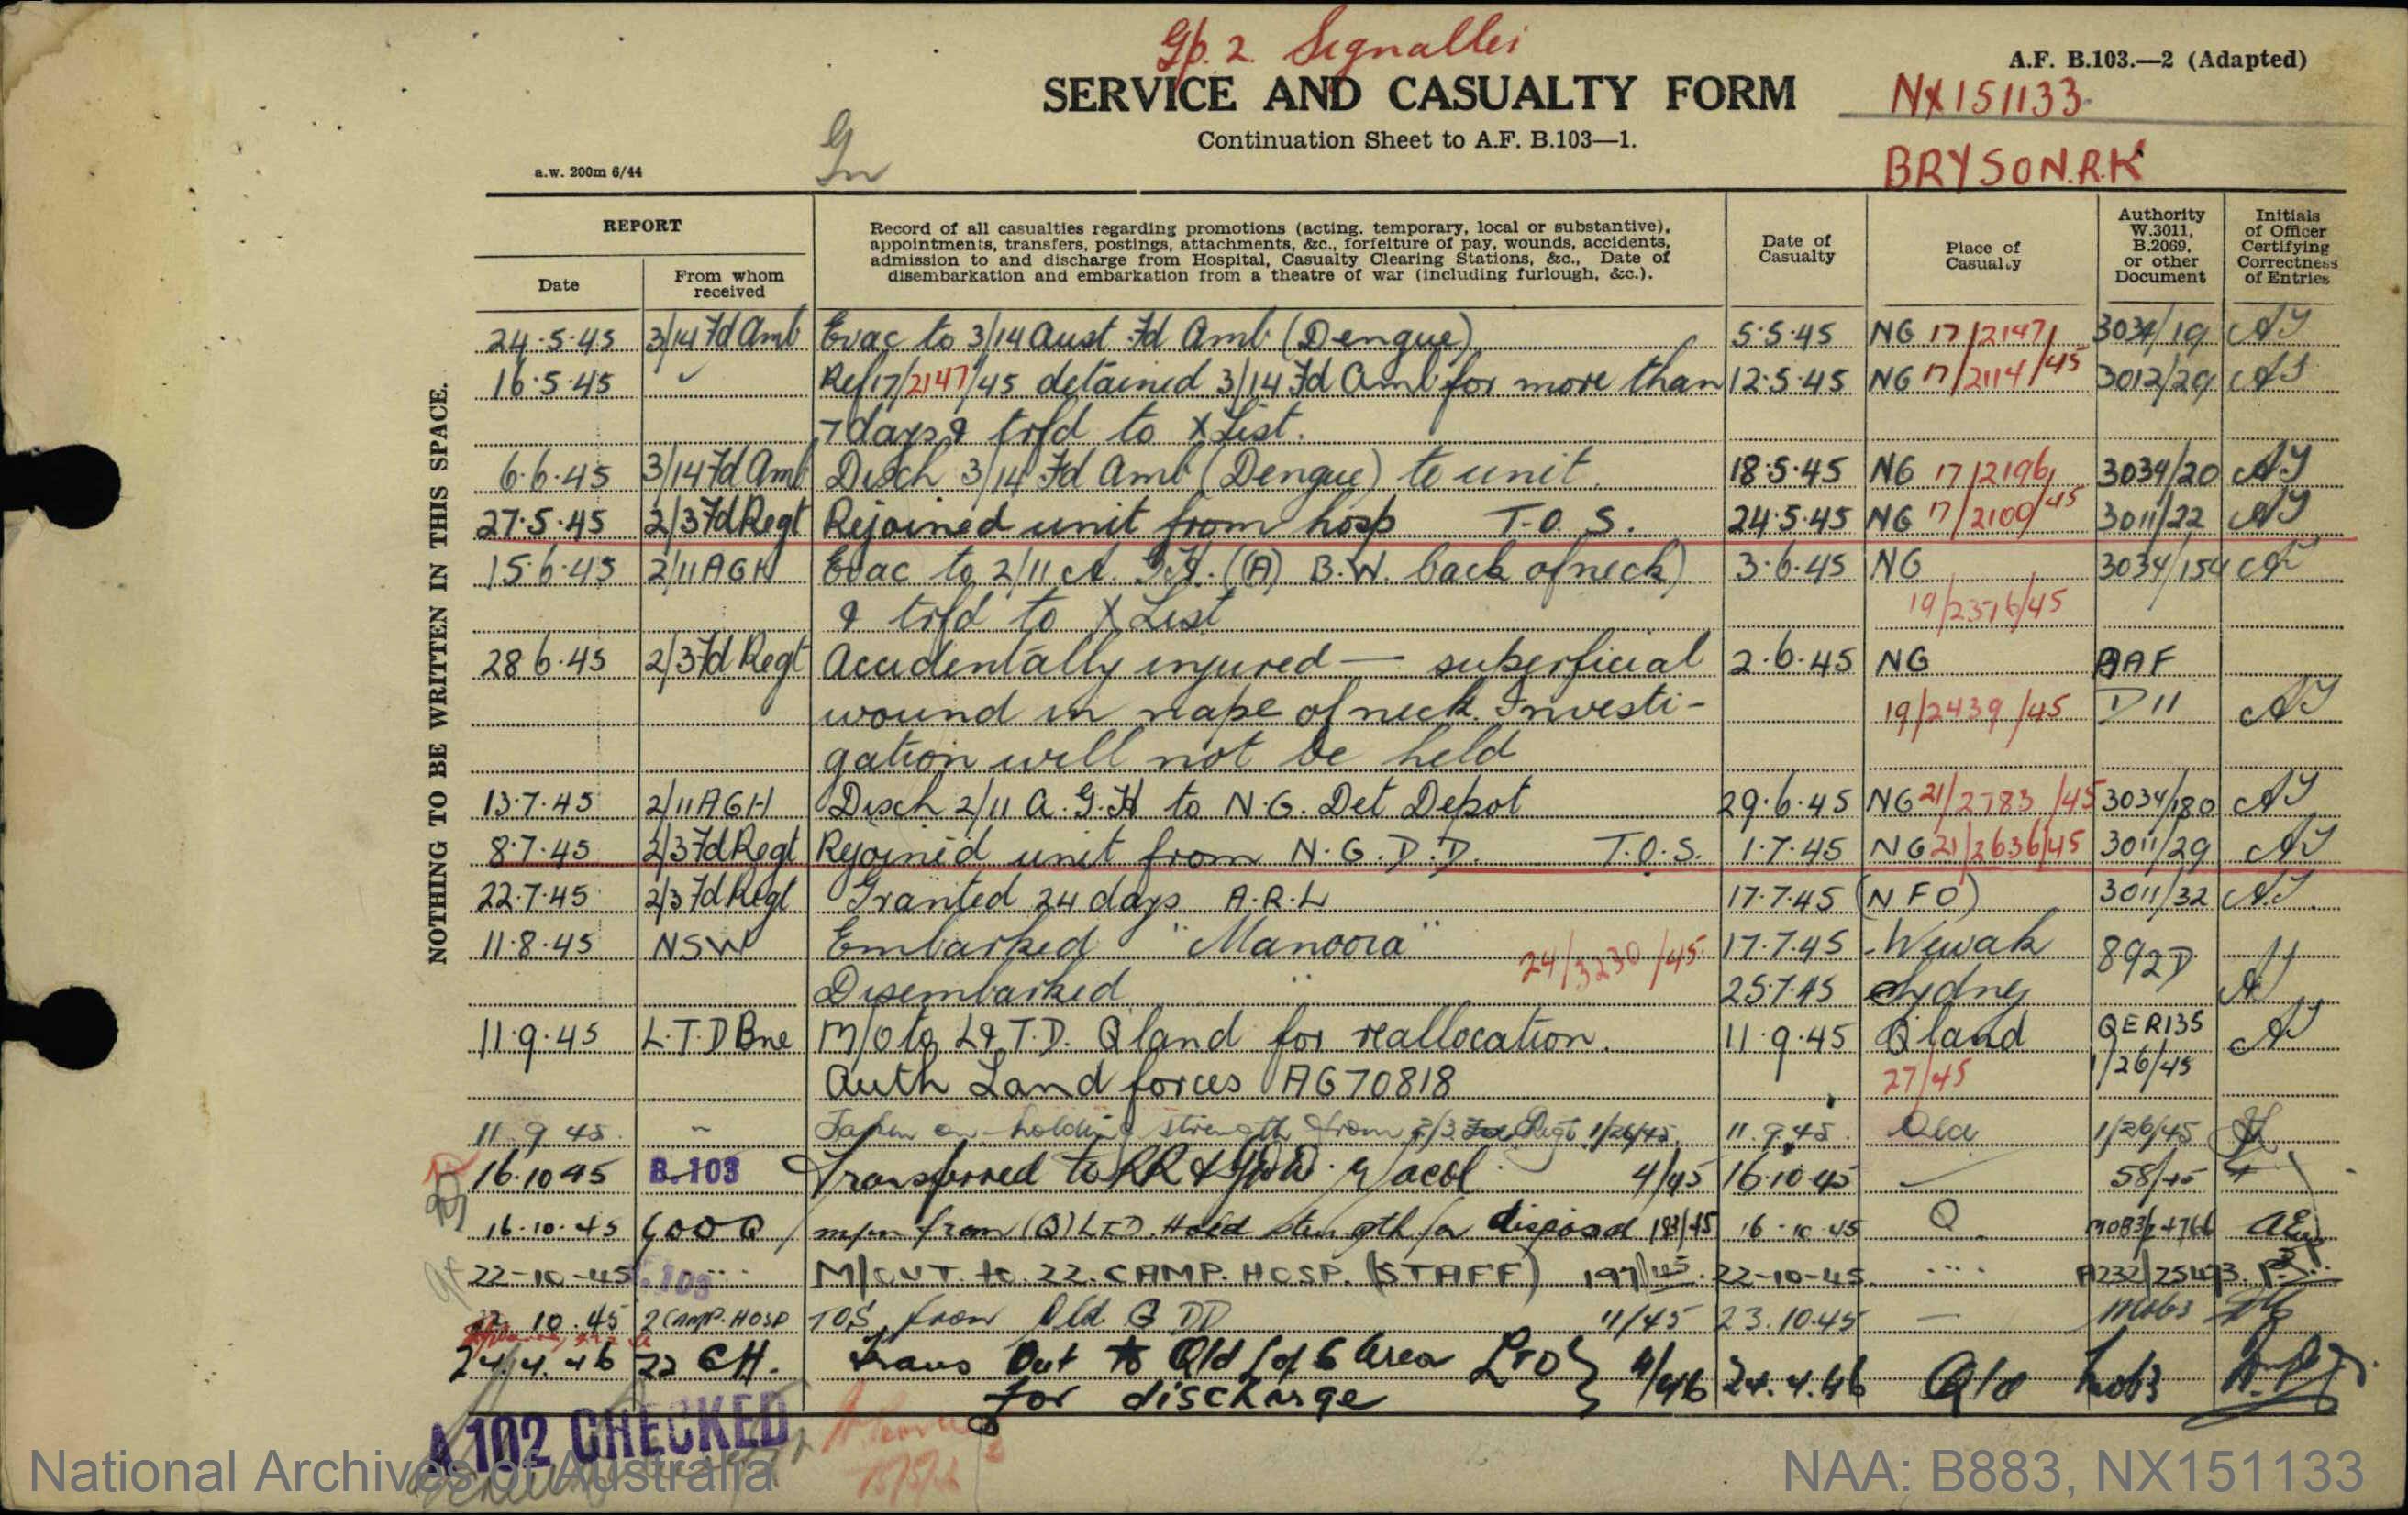 Gp. 2. Signaller
A.F. B.103.—2 (Adapted)
SERVICE AND CASUALTY FORM
NX151133
Continuation Sheet to A.F. B.103—1.
BRYSON. R.K
a.w. 200m 6/44
Gn
NOTHING TO BE WRITTEN IN THIS SPACE.
REPORT
Date
From whom
received
Record of all casualties regarding promotions (acting, temporary, local or substantive),
appointments, transfers, postings, attachments, &c., forfeiture of pay, wounds, accidents,
admission to and discharge from Hospital, Casualty Clearing Stations, &c., Date of
disembarkation and embarkation from a theatre of war (including furlough, &c.).
Date of
Casualty
Place of
Casualty
Authority
W.3011,
B.2069,
or other
Document
Initials
of Officer
Certifying
Correctness
of Entries
24.5.45 3/14 Fd Amb Evac to 3/14 Aust Fd Amb (Dengue) 5.5.45 NG 17/2147/45 3034/19
16.5.45 Ref 17/2147/45 detained 3/14 Fd Amb for more than 12.5.45 NG 17/2114/45 3012/29
7 days & trfd to X List.
6.6.45 3/14 Fd Amb Disch 3/14 Fd Amb (Dengue) to unit. 18.5.45 NG 17/2196/45 3034/20
27.5.45 2/3 Fd Regt Rejoined unit from hosp T.O.S. 24.5.45 NG 17/2100/45 3011/22
15.6.45 2/11 AGH Evac to 2/11 A.G.H. (A) B.W. back of neck) 3.6.45 NG 3034/154
& trfd to X List 19/2376/45
28.6.45 2/3 Fd Regt Accidentally injured — superficial 2.6.45 NG AAF
wound in nape of neck. Investi- 19/2439/45 D11
gation will not be held
13.7.45 2/11 AGH Disch 2/11 A.G.H to N.G. Det Depot 29.6.45 NG 21/2783/45 3034/180
8.7.45 2/3 Fd Regt Rejoined unit from N.G.D.D. T.O.S. 1.7.45 NG 21/2636/45 3011/29
22.7.45 2/3 Fd Regt Granted 24 days A.R.L 17.7.45 (NFO) 3011/32
11.8.45 NSW Embarked "Manoora" 24/3230/45 17.7.45 Wewak 892D
Disembarked " 25.7.45 Sydney
11.9.45 L.T.D Bne M/O to L&T.D. Qland for reallocation. 11.9.45 Qland QER135
Auth Land forces AG70818 27/45 1/26/45
11.9.45 Taken on holding strength from 2/3 Fd Regt 1/26/45 11.9.45 Qld 1/26/45
16.10.45 B.103 Transferred to RR & Wacol 4/45 16.10.45 58/45
16.10.45 GDD Q m/in from (Q) LTD. Hold strength for disposal 183/45 16.10.45 Q.
22-10-45 M/OUT. to. 22. CAMP. HOSP. (STAFF) 197/45 22-10-45
10.45 2 CAMP. HOSP TOS from Qld. G DD 11/45 23.10.45 — Mob3
24.4.46 22 CH. Trans Out to Qld L of C Area LTD 4/46 24.4.46 Qld Mob3
for discharge
A 102 CHECKED
National Archives of Australia
NAA: B883, NX151133